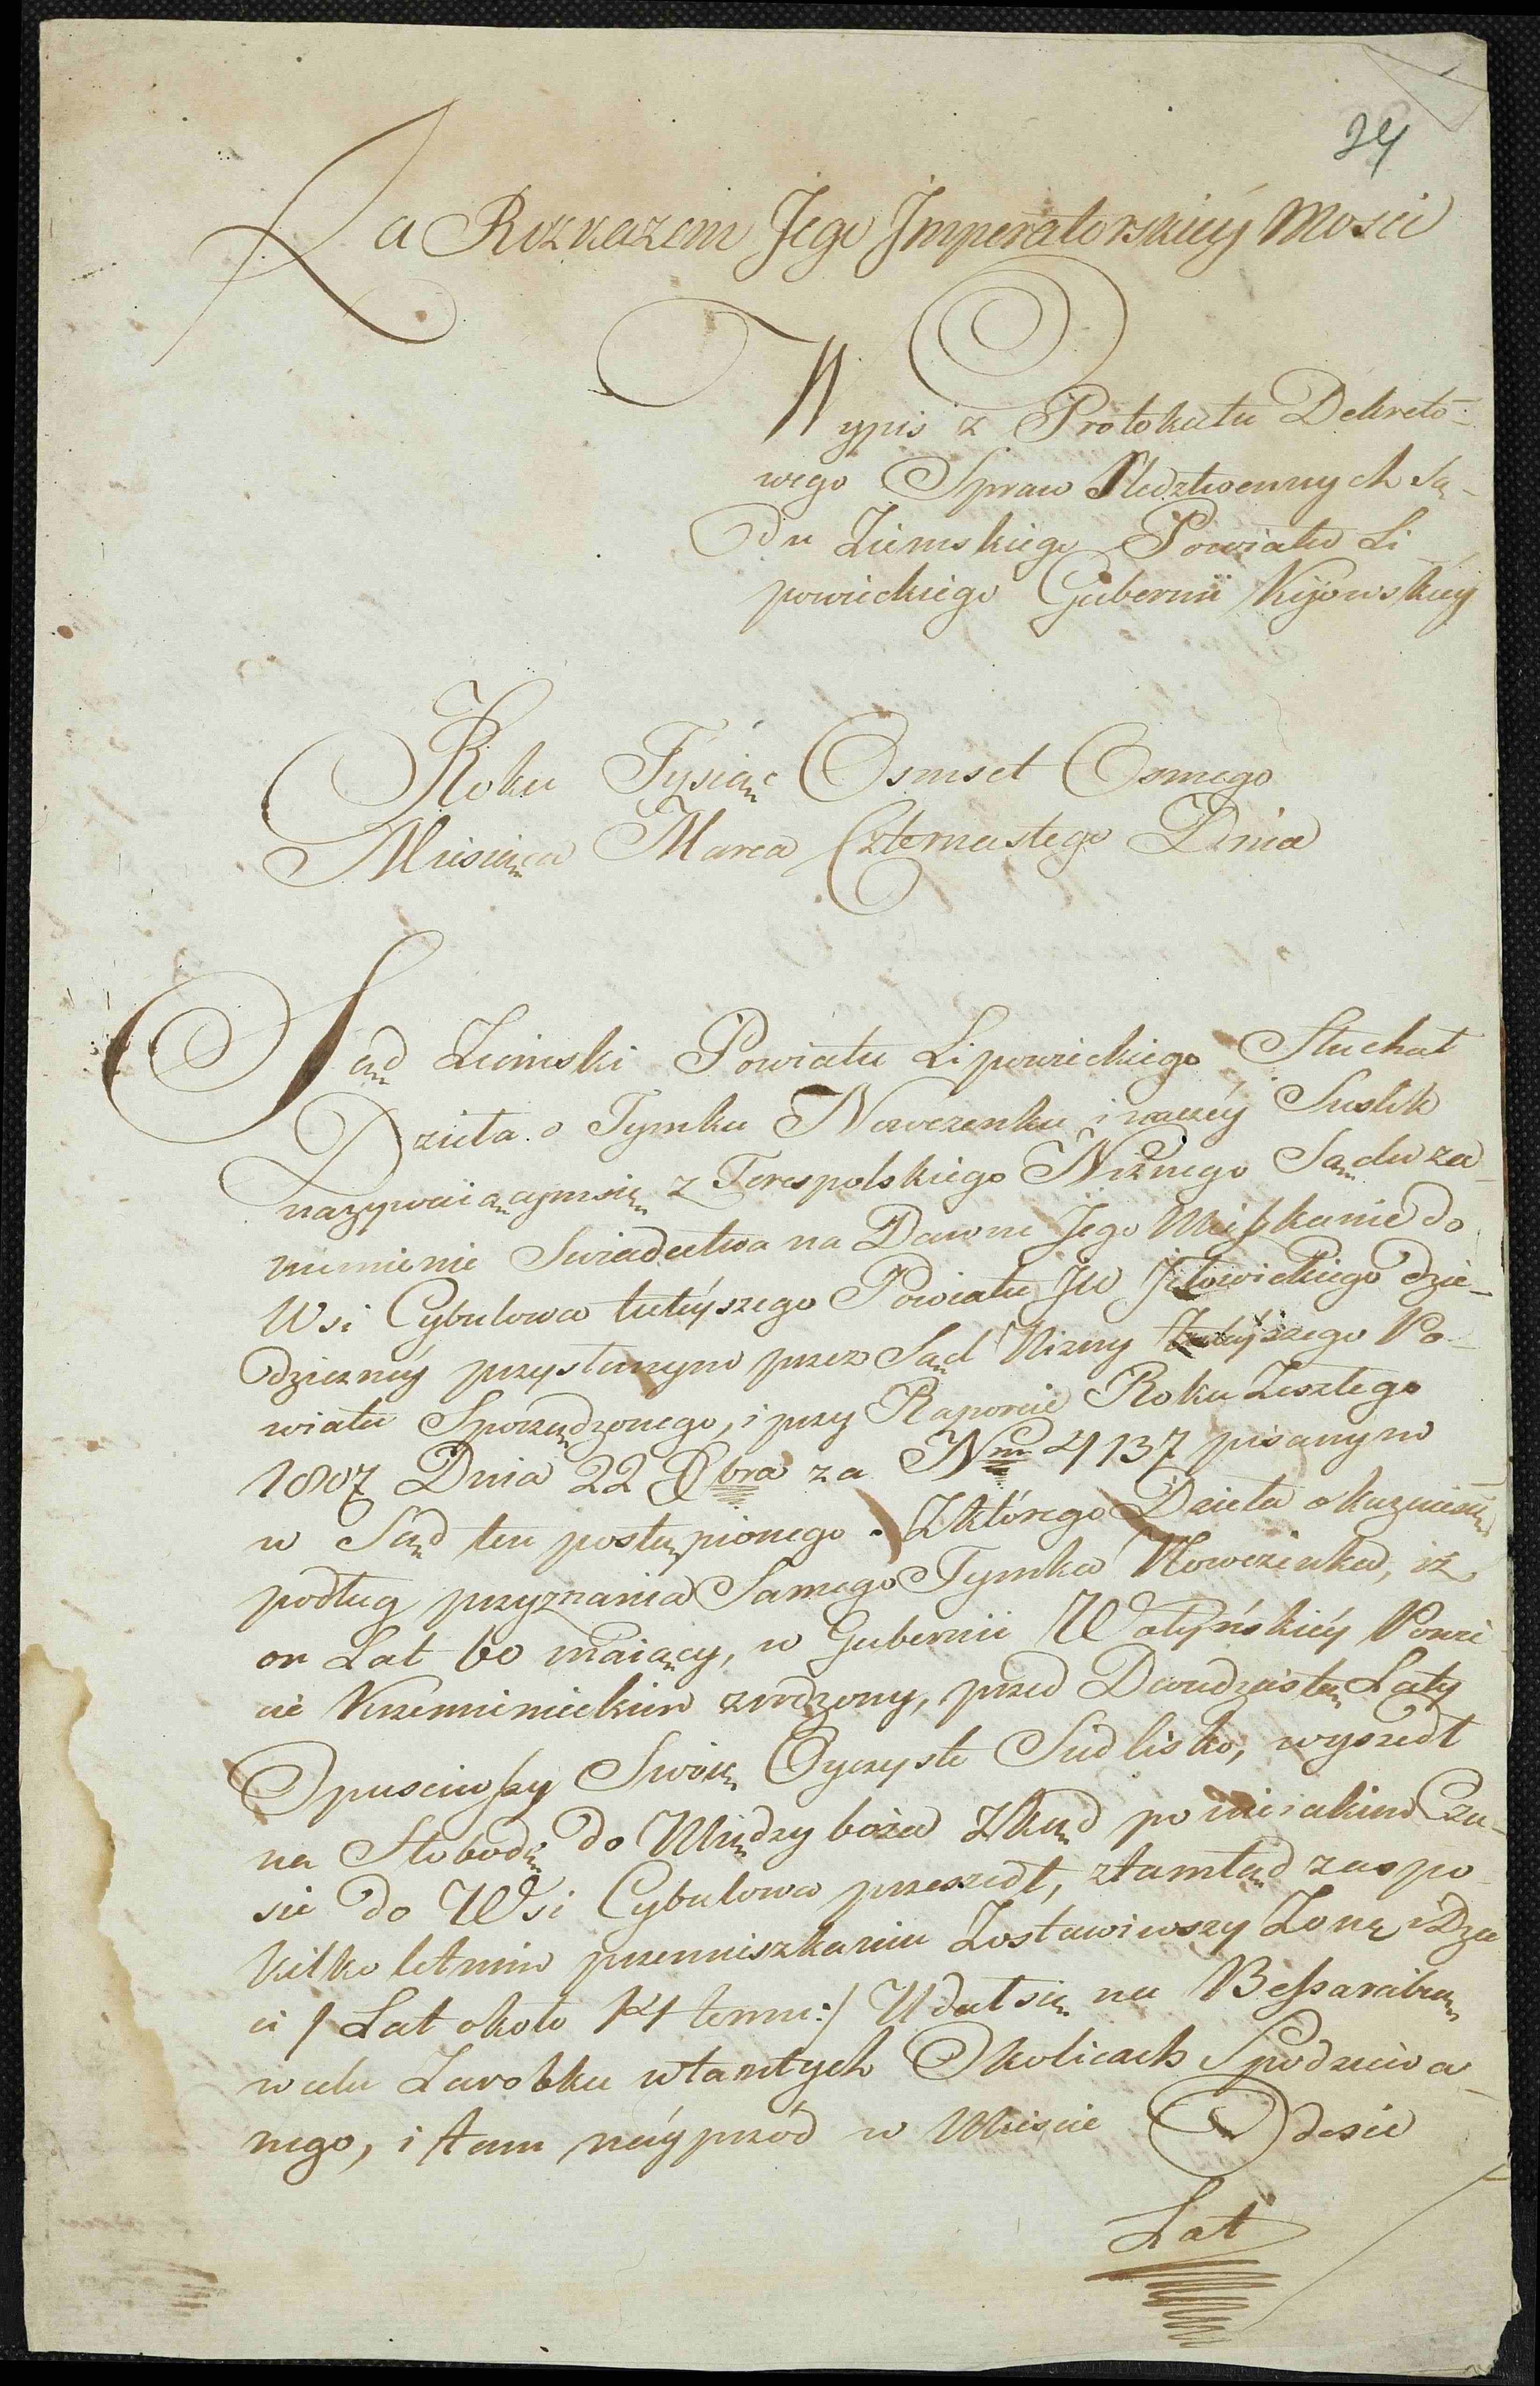 24
Za Rozkazem Jego Imperatorskiéy Mosci
Wypis z Protokułu Dekreto-
wego Spraw Sledztwennych Są-
du Ziemskiego Powiatu Li
powieckiego Gubernii Kijowskiéy
Roku Tysiąc Osmset Osmego
Miesiąca Marca Czternastego Dnia
Sąd Ziemski Powiatu Lipowieckiego Słuchał
Dzieła o Tymku Nowczenku inaczéy Suslik
nazywaiącymsię z Terespolskiego Niżnego Sądu za-
mienie Swiadectwa na Dawne Jego Mieszkanie do
Wsi Cybulowa tutéyszego Powiatu JW Jełowickiego dzie-
dzicznéy przysłanym przez Sąd Nizny tutéyszego Po-
wiatu Sporządzonego, i przy Raporcie Roku Zeszłego
1807 Dnia 22 Xbra za Nm 4137 pisanym
w Sąd ten postąpionego. Zktórego Dzieła okazuiesię
podług przyznania Samego Tymka Nowczenka, iż
on Lat 60 maiący, w Gubernii Wołyńskiéy Powie
cie Krzemienieckim zrodzony, przed Dwudziestą Laty
Opusciwszy Swóię Oyczyste Siedlisko, wyszedł
na Słobodę do Międzyboża zkąd po niejakim Cza-
sie do Wsi Cybulowa przeszedł, ztamtąd zas po
kilko letnim przemieszkaniu Zostawiwszy Zonę i Dzie
ci / Lat około 14 temu:/ Udałsię na Bessarabią
w celu Zarobku wtamtych Okolicach Spodziewa-
nego, i tam náyprzód w Miescie Odesie
Lat